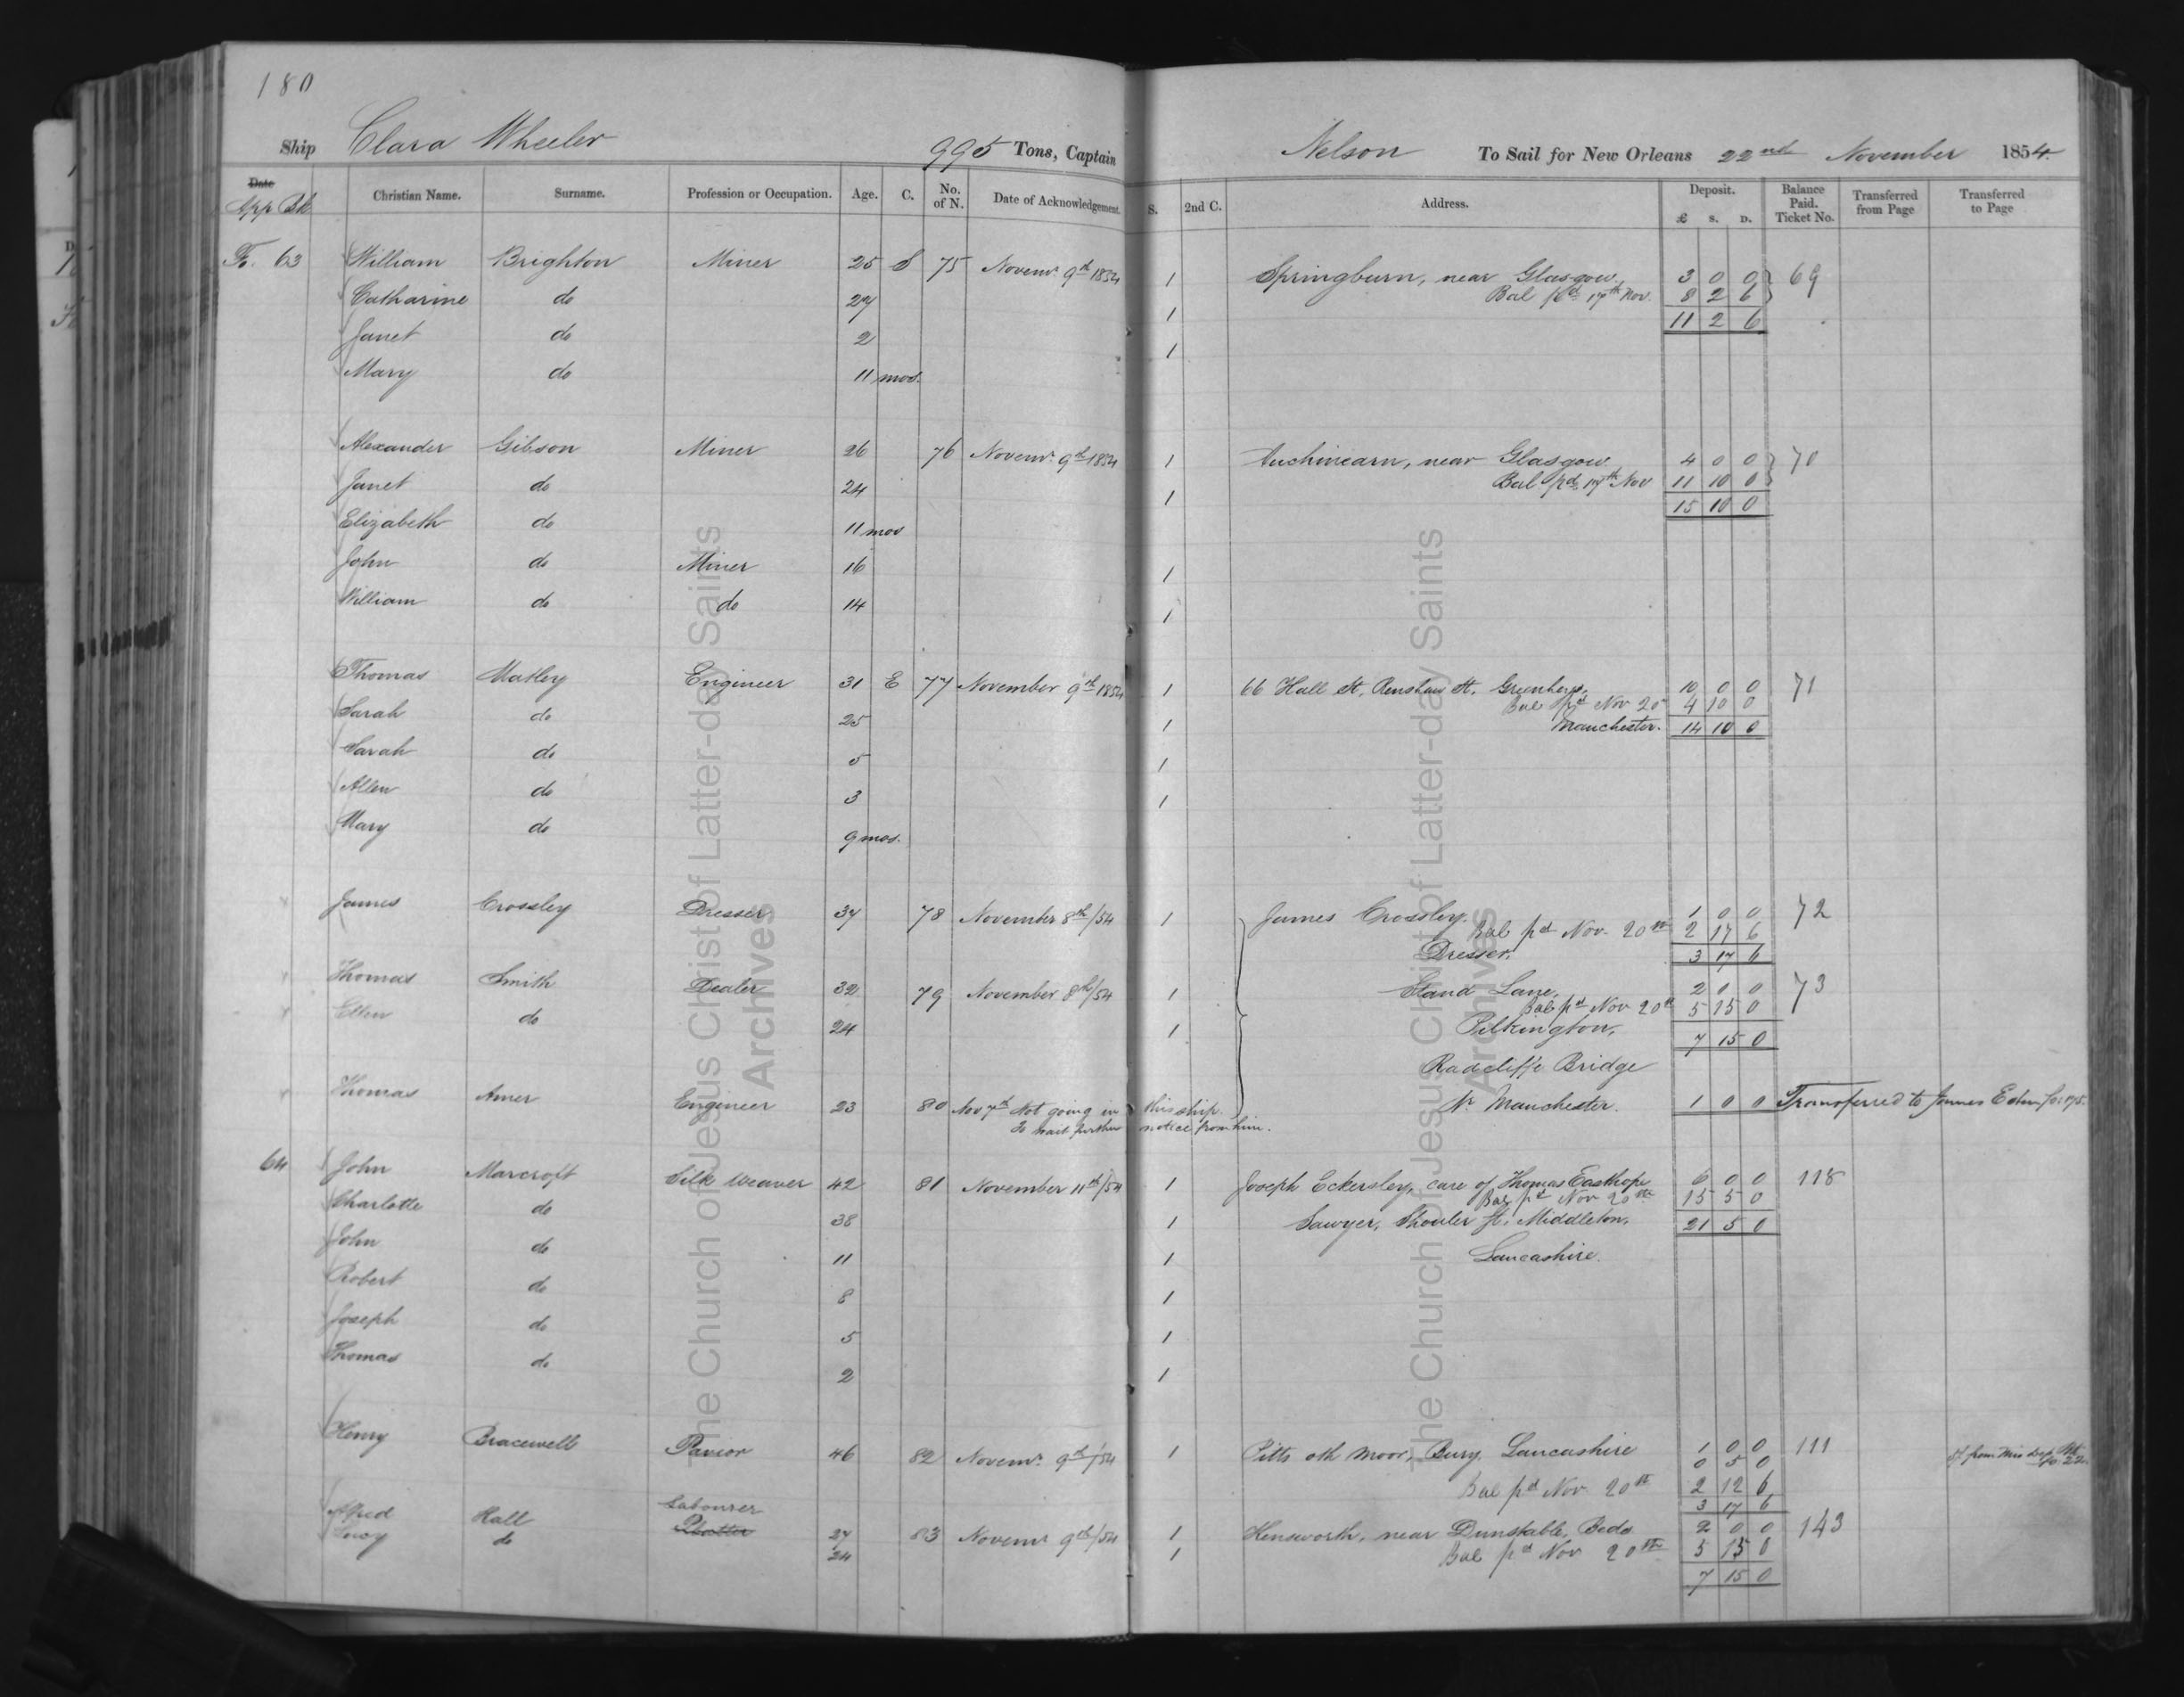 180
Ship Clara Wheeler 995 Tons, Captain Nelson To Sail for New Orleans 22nd November 1854
Date Christian Name. Surname. Profession or Occupation. Age. C. No. of N. Date of Acknowledgement. S. 2nd C. Address. Deposit. £ S. D. Balance Paid. Ticket No. Transferred from Page Transferred to Page
App Bk
Fo. 63 William Brighton Miner 25 S 75 Novemr. 9th 1854 1 Springburn, near Glasgow 3 0 0 69
Catharine do 27 1 Bal pd 17th Nov. 8 2 6
Janet do 2 1 11 2 6
Mary do 11 mos.
Alexander Gibson Miner 26 76 Novemr. 9th 1854 1 Auchinearn, near Glasgow 4 0 0 70
Janet do 24 1 Bal pd 17th Nov 11 10 0
Elizabeth do 11 mos 15 10 0
John do Miner 16 1
William do do 14 1
Thomas Matley Engineer 31 E 77 November 9th 1854 1 66 Hall St, Renshaw St. Greenheys, 10 0 0 71
Sarah do 25 1 Bal pd Nov 20 4 10 0
Manchester. 14 10 0
Sarah do 5 1
Allen do 3 1
Mary do 9 mos.
James Crossley Dresser 37 78 November 8th/54 1 James Crossley. 1 0 0 72
Bal pd Nov. 20th 2 17 6
Dresser. 3 17 6
Thomas Smith Dealer 32 79 November 8th/54 1 Stand Lane, 2 0 0 73
Bal pd Nov 20th 5 15 0
Ellen do 24 1 Pilkington, 7 15 0
Radcliffe Bridge
Thomas Amer Engineer 23 80 Nov 7th Not going in this ship. Nr. Manchester. 1 0 0 Transferred to James
To wait further notice from him.
64 John Marcroft Silk Weaver 42 81 November 11th/54 1 Joseph Eckersley, care of Thomas Easthope 6 0 0 118
Bal pd Nov 20th 15 5 0
Charlotte do 38 1 Sawyer, St. Middleton, 21 5 0
John do 11 1 Lancashire.
Robert do 8 1
Joseph do 5 1
Thomas do 2 1
Henry Bracewell Pavior 46 82 Novemr. 9th/54 1 Pitts oth Moor, Bury, Lancashire 1 0 0 111
0 5 0 from Mis Dep. Bk
Bal pd Nov. 20th 2 12 6
3 17 6
Labourer
Alfred Hall 27 83 Novemr 9th/54 1 Kensworth, near Dunstable, Beds 2 0 0 143
Lucy do 24 1 Bal pd Nov 20th 5 15 0
7 15 0
The Church of Jesus Christ of Latter-day Saints
Archives
The Church of Jesus Christ of Latter-day Saints
Archives